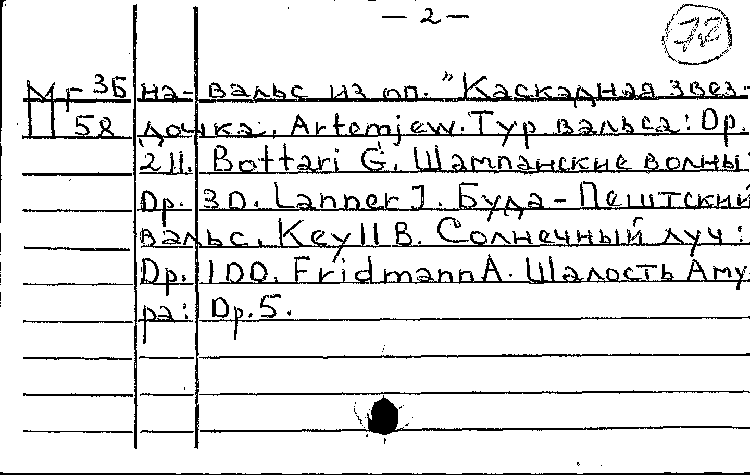 — 2 —
72
Мг 3Б на- вальс из оп. "Каскадная звез-
58 дочка. Artemjew. Тур вальса: Op.
211. Bottari G. Шампанские волны:
Op. 30. Lanner J. Буда-Пештский
вальс. Keyll B. Солнечный луч:
Op. 100. Fridmann A. Шалость Аму-
ра: Op. 5.